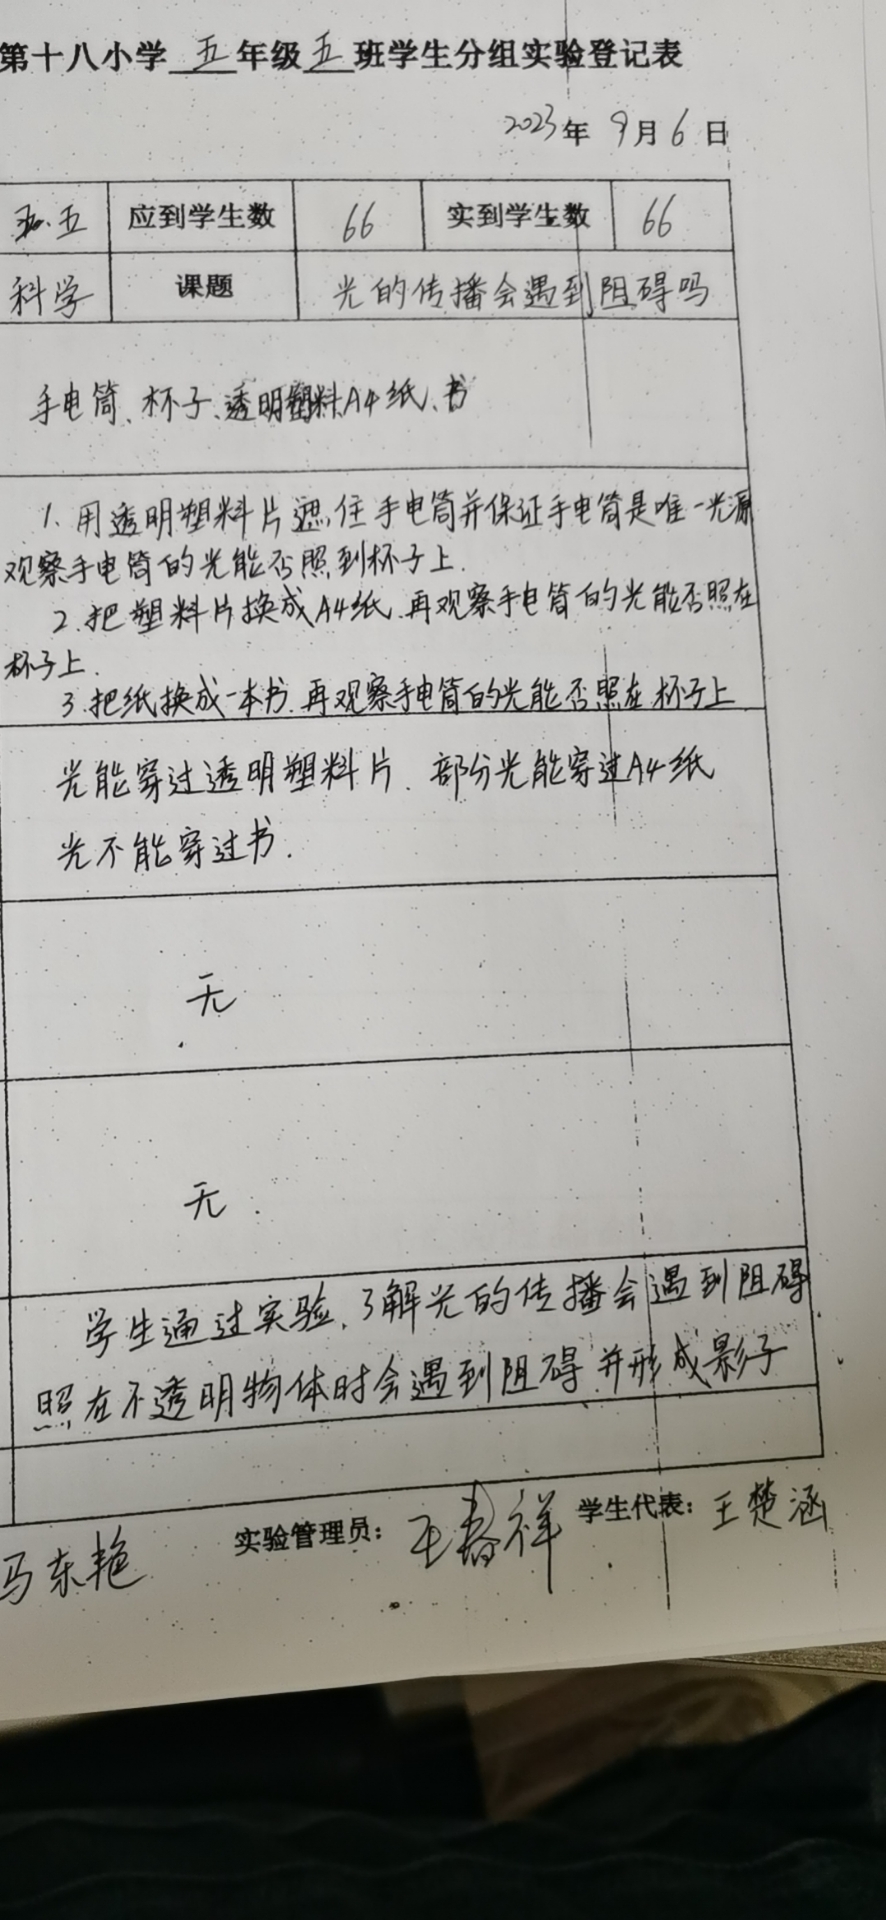 第十八小学 五 年级 五 班学生分组实验登记表
2023年 9月 6日
五.五 应到学生数 66 实到学生数 66
科学 课题 光的传播会遇到阻碍吗
手电筒、杯子、透明塑料、A4纸、书
1. 用透明塑料片遮住手电筒并保证手电筒是唯一光源
观察手电筒的光能否照到杯子上.
2. 把塑料片换成A4纸.再观察手电筒的光能否照在
杯子上.
3.把纸换成一本书.再观察手电筒的光能否照在杯子上
光能穿过透明塑料片. 部分光能穿过A4纸
光不能穿过书.
无
无.
学生通过实验.了解光的传播会遇到阻碍
照在不透明物体时会遇到阻碍.并形成影子
马东艳 实验管理员: 王春祥 学生代表: 王楚涵